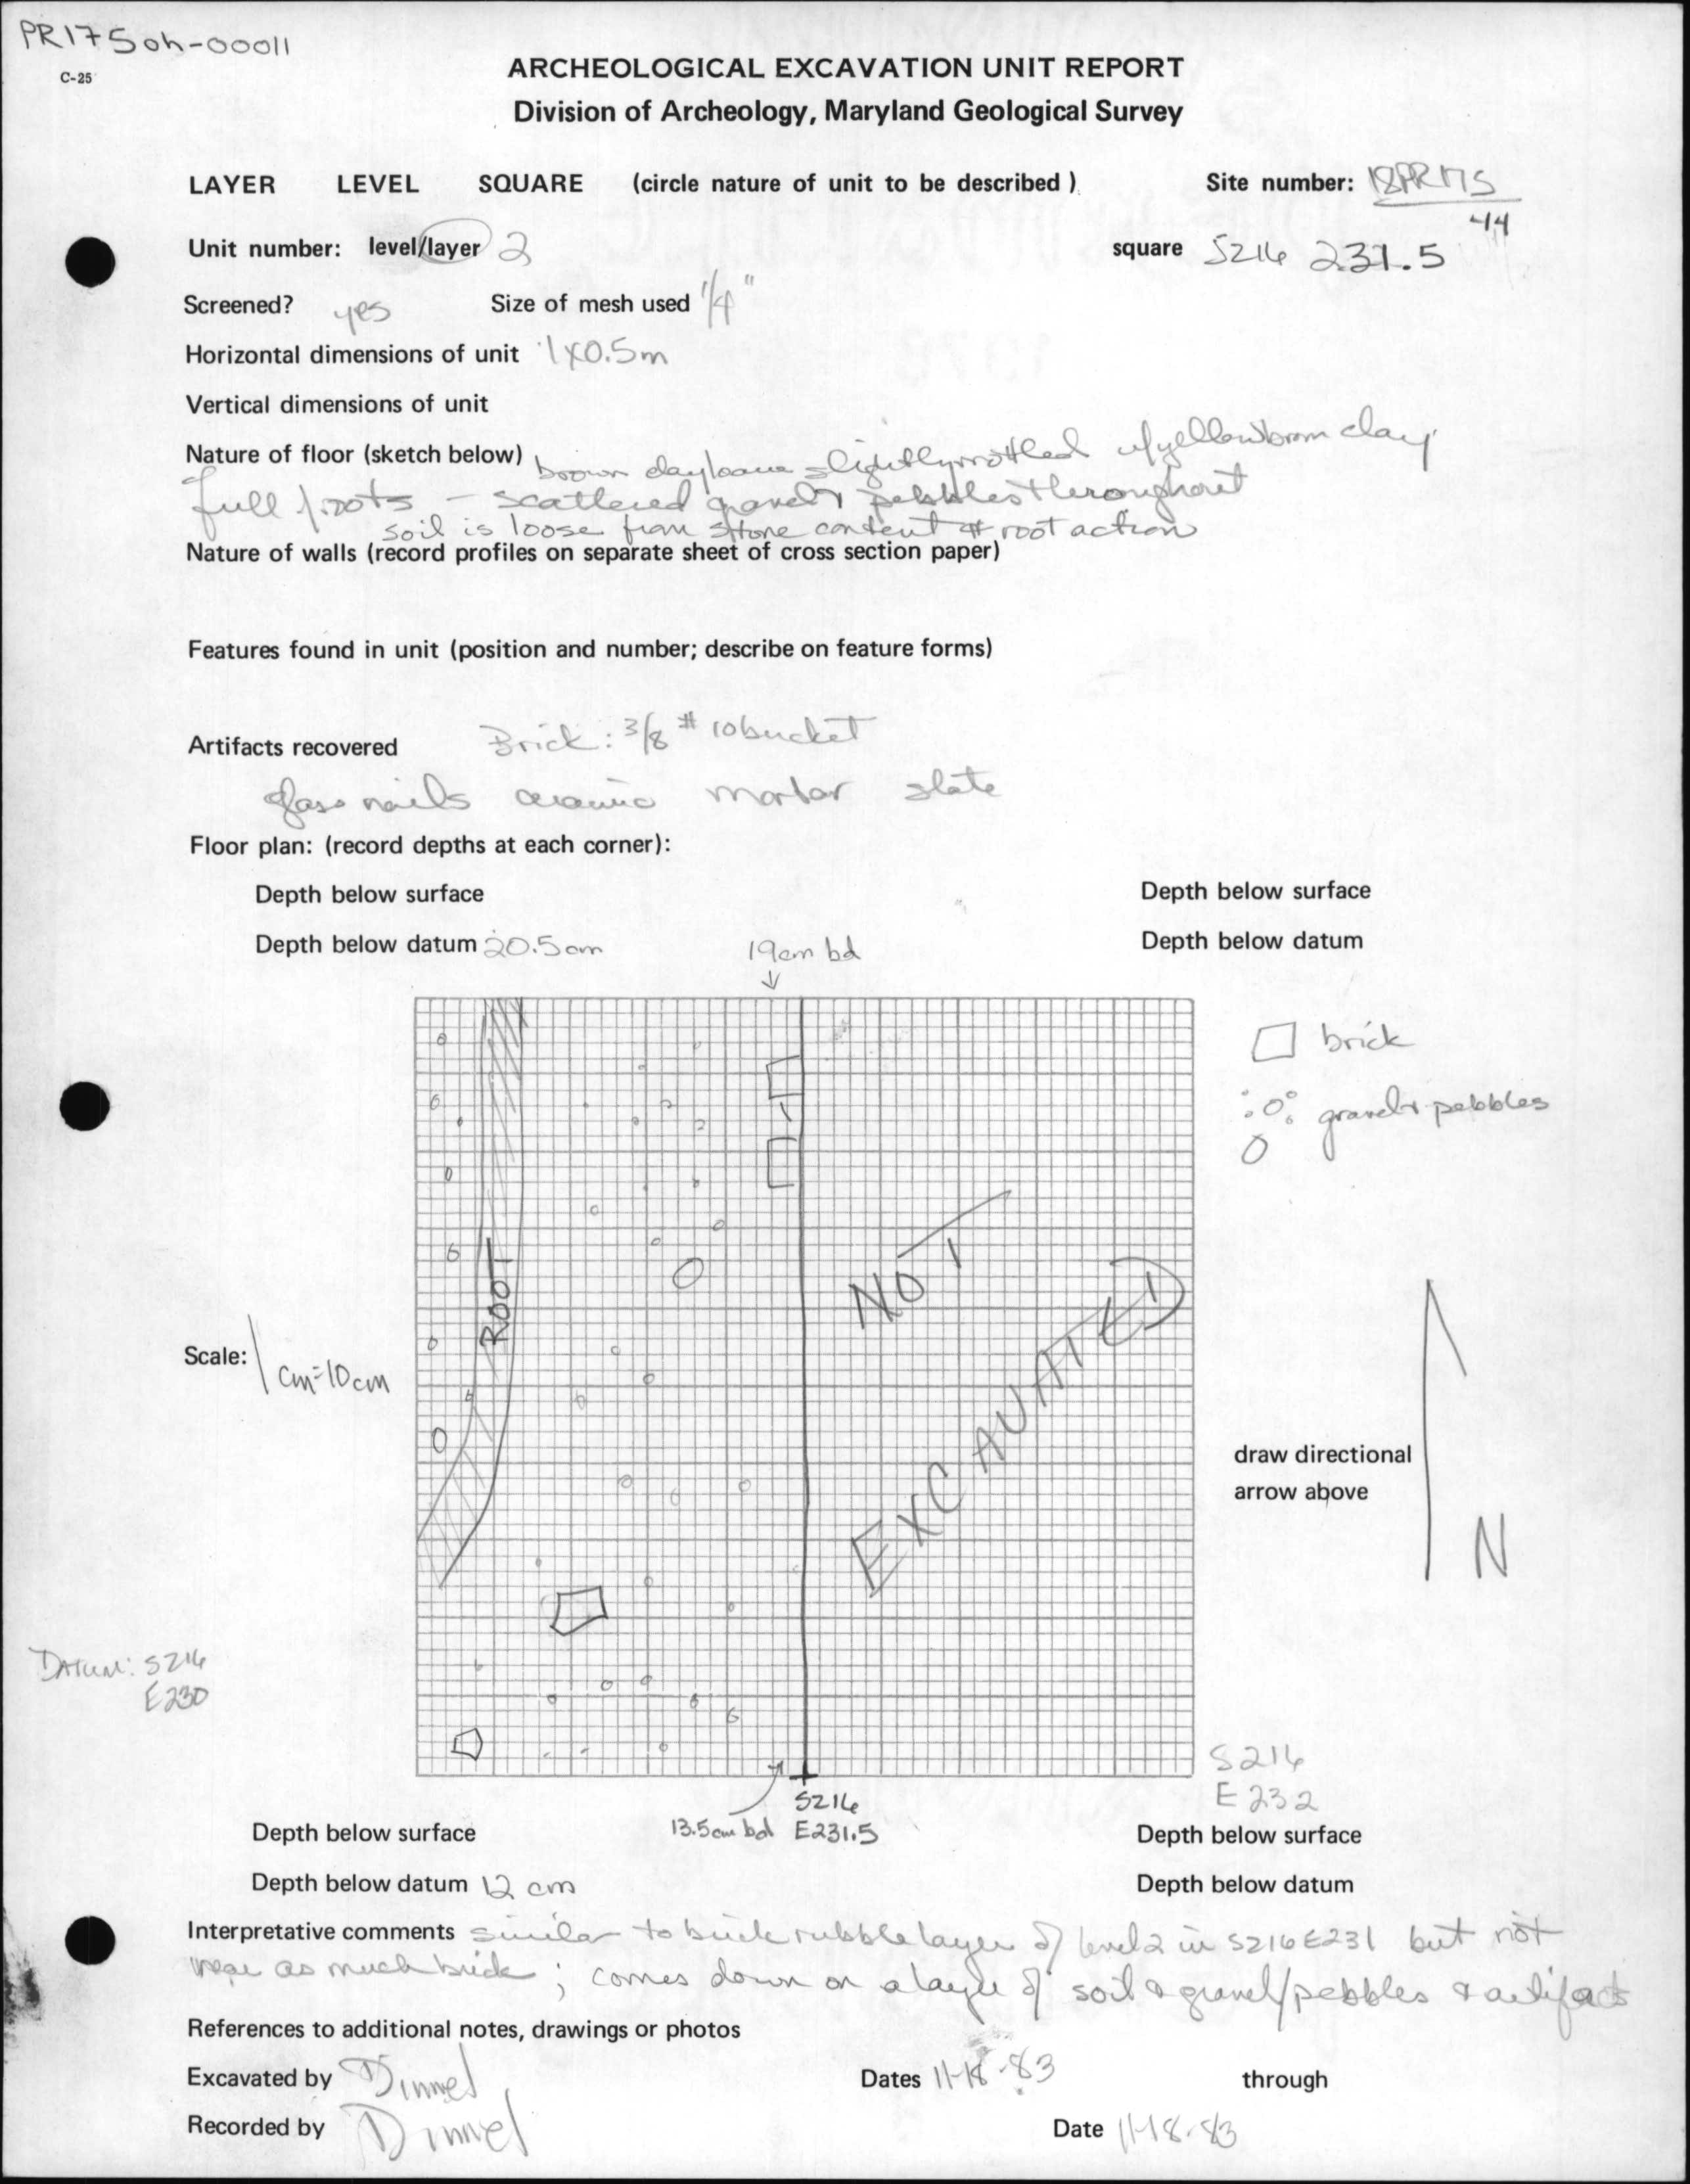 PR175oh-00011
C-25
ARCHEOLOGICAL EXCAVATION UNIT REPORT
Division of Archeology, Maryland Geological Survey
LAYER LEVEL SQUARE (circle nature of unit to be described) Site number: 18PR175
44
Unit number: level/layer 2 square S216 231.5
Screened? yes Size of mesh used 1/4"
Horizontal dimensions of unit 1x0.5m
Vertical dimensions of unit
Nature of floor (sketch below) brown clay loam slightly mottled w/yellow brown clay
full roots - scattered gravel & pebbles throughout
soil is loose from stone content & root action
Nature of walls (record profiles on separate sheet of cross section paper)
Features found in unit (position and number; describe on feature forms)
Artifacts recovered Brick: 3/8 # 10 bucket
glass nails ceramic mortar slate
Floor plan: (record depths at each corner):
Depth below surface Depth below surface
Depth below datum 20.5cm 19cm bd Depth below datum
brick
gravel & pebbles
ROOT
NOT
EXCAVATED
Scale: 1 cm=10cm
draw directional
arrow above
N
DATUM: S216
E230
S216
E232
S216
13.5cm bd E231.5
Depth below surface Depth below surface
Depth below datum 12 cm Depth below datum
Interpretative comments similar to brick rubble layer of level 2 in S216E231 but not
near as much brick; comes down on a layer of soil & gravel/pebbles & artifacts
References to additional notes, drawings or photos
Excavated by Dinnel Dates 11-18-83 through
Recorded by Dinnel Date 11-18-83